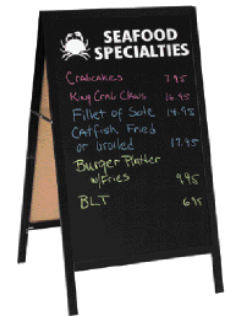 SEAFOOD
SPECIALTIES
Crabcakes 7.95
King Crab Claws 16.95
Fillet of Sole 14.95
Catfish Fried
or broiled 17.95
Burger Platter
w/Fries 9.95
BLT 6.95